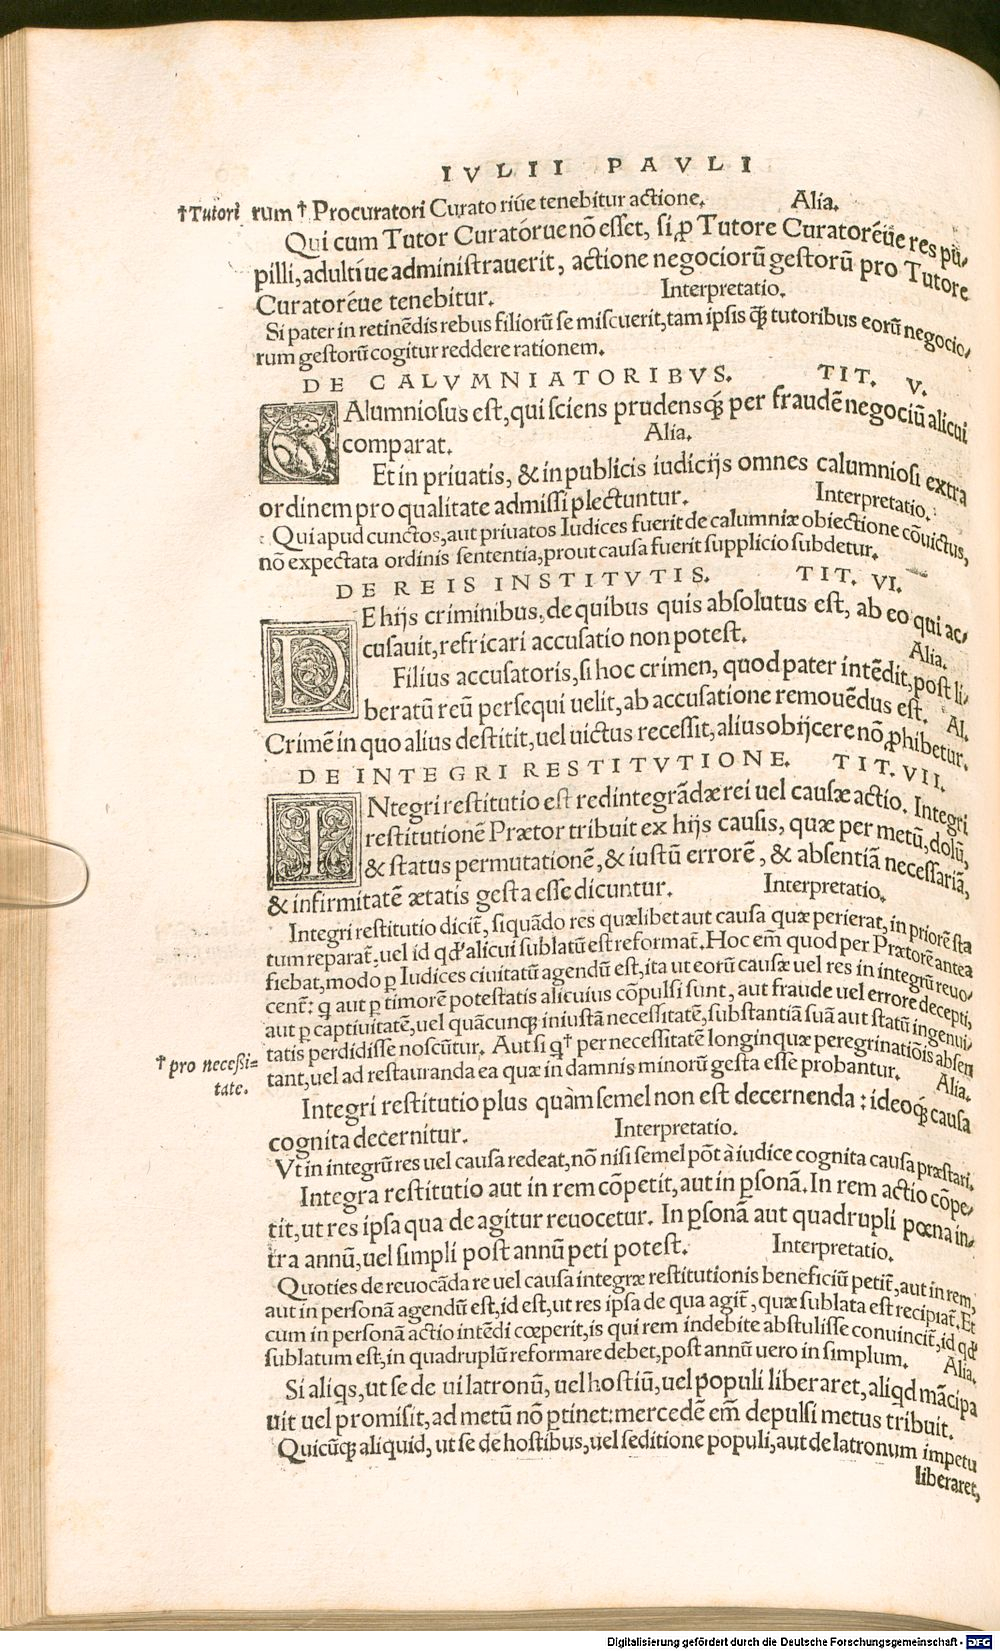 IVLII PAVLI
†Tutori rum † Procuratori Curatoriúe tenebitur actione. Alia.
Qui cum Tutor Curatórue nõ esset, si ꝓ Tutore Curatoréue res pu-
pilli, adultíue administrauerit, actione negociorũ gestorũ pro Tutore
Curatoréue tenebitur. Interpretatio.
Si pater in retinẽdis rebus filiorũ se miscuerit, tam ipsis ꝙ̃ tutoribus eorũ negocio-
rum gestorũ cogitur reddere rationem.
DE CALVMNIATORIBVS. TIT. V.
CAlumniosus est, qui sciens prudensq́; per fraudẽ negociũ alicui
comparat. Alia.
Et in priuatis, & in publicis iudicijs omnes calumniosi extra
ordinem pro qualitate admissi plectuntur. Interpretatio.
Qui apud cunctos, aut priuatos Iudices fuerit de calumniæ obiectione cõuictus,
nõ expectata ordinis sententia, prout causa fuerit supplicio subdetur.
DE REIS INSTITVTIS. TIT. VI.
DE hijs criminibus, de quibus quis absolutus est, ab eo qui ac-
cusauit, refricari accusatio non potest. Alia.
Filius accusatoris, si hoc crimen, quod pater intẽdit, post li-
beratũ reũ persequi uelit, ab accusatione remouẽdus est. Al.
Crimẽ in quo alius destitit, uel uictus recessit, alius obijcere nõ ꝓhibetur.
DE INTEGRI RESTITVTIONE. TIT. VII.
INtegri restitutio est redintegrãdæ rei uel causæ actio. Integri
restitutionẽ Prætor tribuit ex hijs causis, quæ per metũ, dolũ,
& status permutationẽ, & iustũ errorẽ, & absentiã necessariã,
& infirmitatẽ ætatis gesta esse dicuntur. Interpretatio.
Integri restitutio dicit̃, siquãdo res quælibet aut causa quæ perierat, in priorẽ sta
tum reparat̃, uel id qđ alicui sublatũ est reformat̃. Hoc em̃ quod per Prætorẽ antea
fiebat, modo ꝑ Iudices ciuitatũ agendũ est, ita ut eorũ causæ uel res in integrũ reuo-
cent̃: q̃ aut ꝑ timorẽ potestatis alicuius cõpulsi sunt, aut fraude uel errore decepti,
aut ꝑ captiuitatẽ, uel quãcunq; iniustã necessitatẽ, substantiã suã aut statũ ingenui-
tatis perdidisse noscũtur. Aut si q† per necessitatẽ longinquæ peregrinatiõis absen
†pro necessi=
tate.
tant, uel ad restauranda ea quæ in damnis minorũ gesta esse probantur. Alia.
Integri restitutio plus quàm semel non est decernenda: ideoq́; causa
cognita decernitur. Interpretatio.
Vt in integrũ res uel causa redeat, nõ nisi semel põt à iudice cognita causa præstari.
Integra restitutio aut in rem cõpetit, aut in ꝑsonã. In rem actio cõpe-
tit, ut res ipsa qua de agitur reuocetur. In ꝑsonã aut quadrupli pœna in-
tra annũ, uel simpli post annũ peti potest. Interpretatio.
Quoties de reuocãda re uel causa integræ restitutionis beneficiũ petit̃, aut in rem,
aut in personã agendũ est, id est, ut res ipsa de qua agit̃, quæ sublata est recipiat̃. Et
cum in personã actio intẽdi cœperit, is qui rem indebite abstulisse conuincit̃, id qđ
sublatum est, in quadruplũ reformare debet, post annũ uero in simplum. Alia.
Si aliqs, ut se de ui latronũ, uel hostiũ, uel populi liberaret, aliqd mãcipa
uit uel promisit, ad metũ nõ ꝑtinet: mercedẽ em̃ depulsi metus tribuit.
Quicũq; aliquid, ut se de hostibus, uel seditione populi, aut de latronum impetu
liberaret,
Digitalisierung gefördert durch die Deutsche Forschungsgemeinschaft - DFG